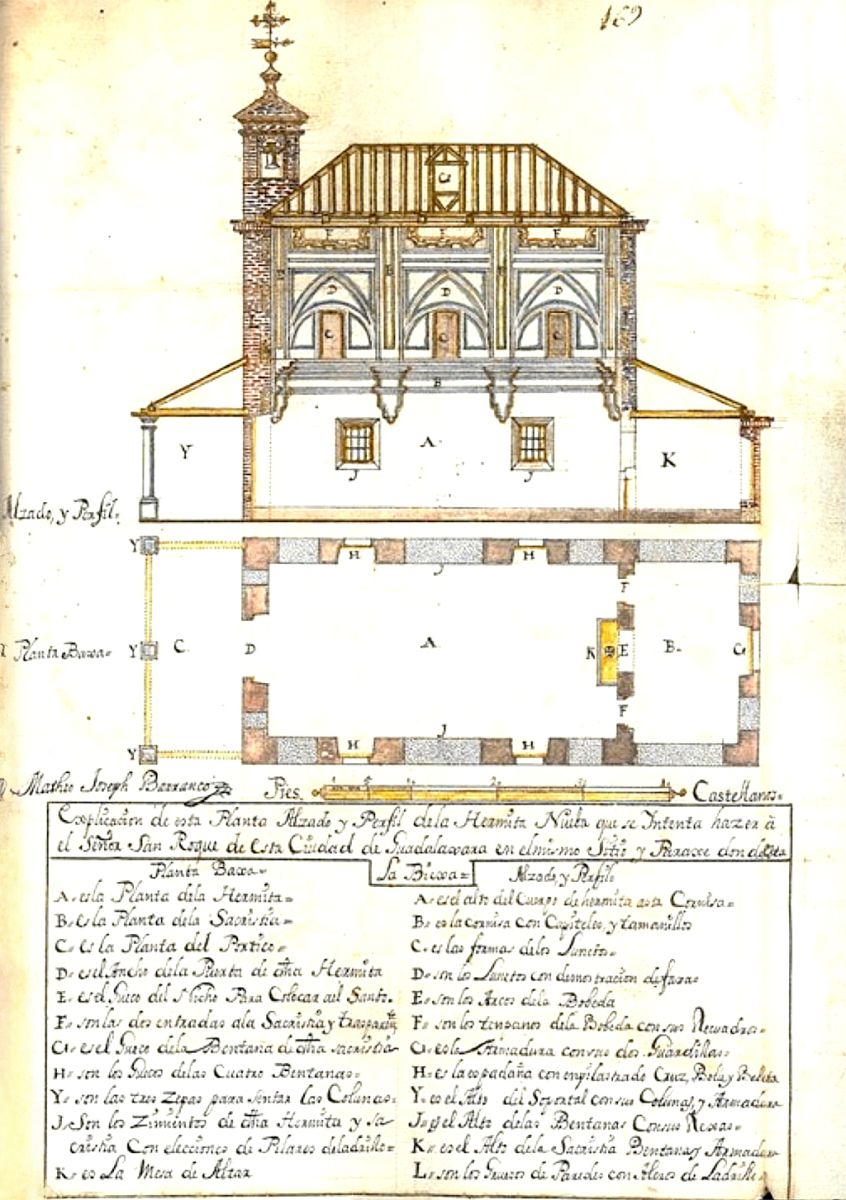 169
G
F F F
D D D
C C C
B
A
Y
K
J J
Alzado, y Perfil.
Y H H
J
F
Planta Baxa=
Y C. D A K E B. G
F
J
Y H H
Matheo Joseph Barranco
Pies. Castellanos=
Explicacion de esta Planta Alzado y Perfil dela Hermita Nueba que se Intenta hazer à
el Señor San Roque de Esta Ciudad de Guadalaxara en elmismo Sitio y Paraxe donde esta
La Biexa=
Planta Baxa=
A= esla Planta dela Hermita=
B= es la Planta dela Sacristia=
C= es la Planta del Portico=
D= es el Ancho dela Puerta de dha Hermita
E= es el Gueco del Nicho Para Colocar ael Santo.
F= son las dos entradas ala Sacristia y
G= es el Gueco dela Bentana de dha sacristia
H= son los Guecos delas Cuatro Bentanas=
Y= son las tres Zepas para sentar las Colunas=
J= Son los Zimientos de dha Hermita y sa
cristia Con elecciones de Pilares deladrillo=
K= es La Mesa de Altar
Alzado, y Perfil=
A= es el alto del Cuerpo de hermita asta Cornisa=
B= es la cornisa con Capiteles, y tamanillos
C= es las formas delos Lunetos=
D= son los Lunetos con demostracion de faxa=
E= son los Arcos dela Bobeda
F= son los tenpanos dela Bobeda con sus Recuadros=
G= es la Armadura con sus dos Guardillas=
H= es la espadaña con enpilastrado Cruz, Bola y Beleta
Y= es el Alto del Soportal con sus Colunas, y Armadura
J= es el Alto delas Bentanas Con sus Rexas=
K= es el Alto dela Sacristia Bentana y Armadura
L= son los Gruesos de Paredes con Aleros de Ladrillo=